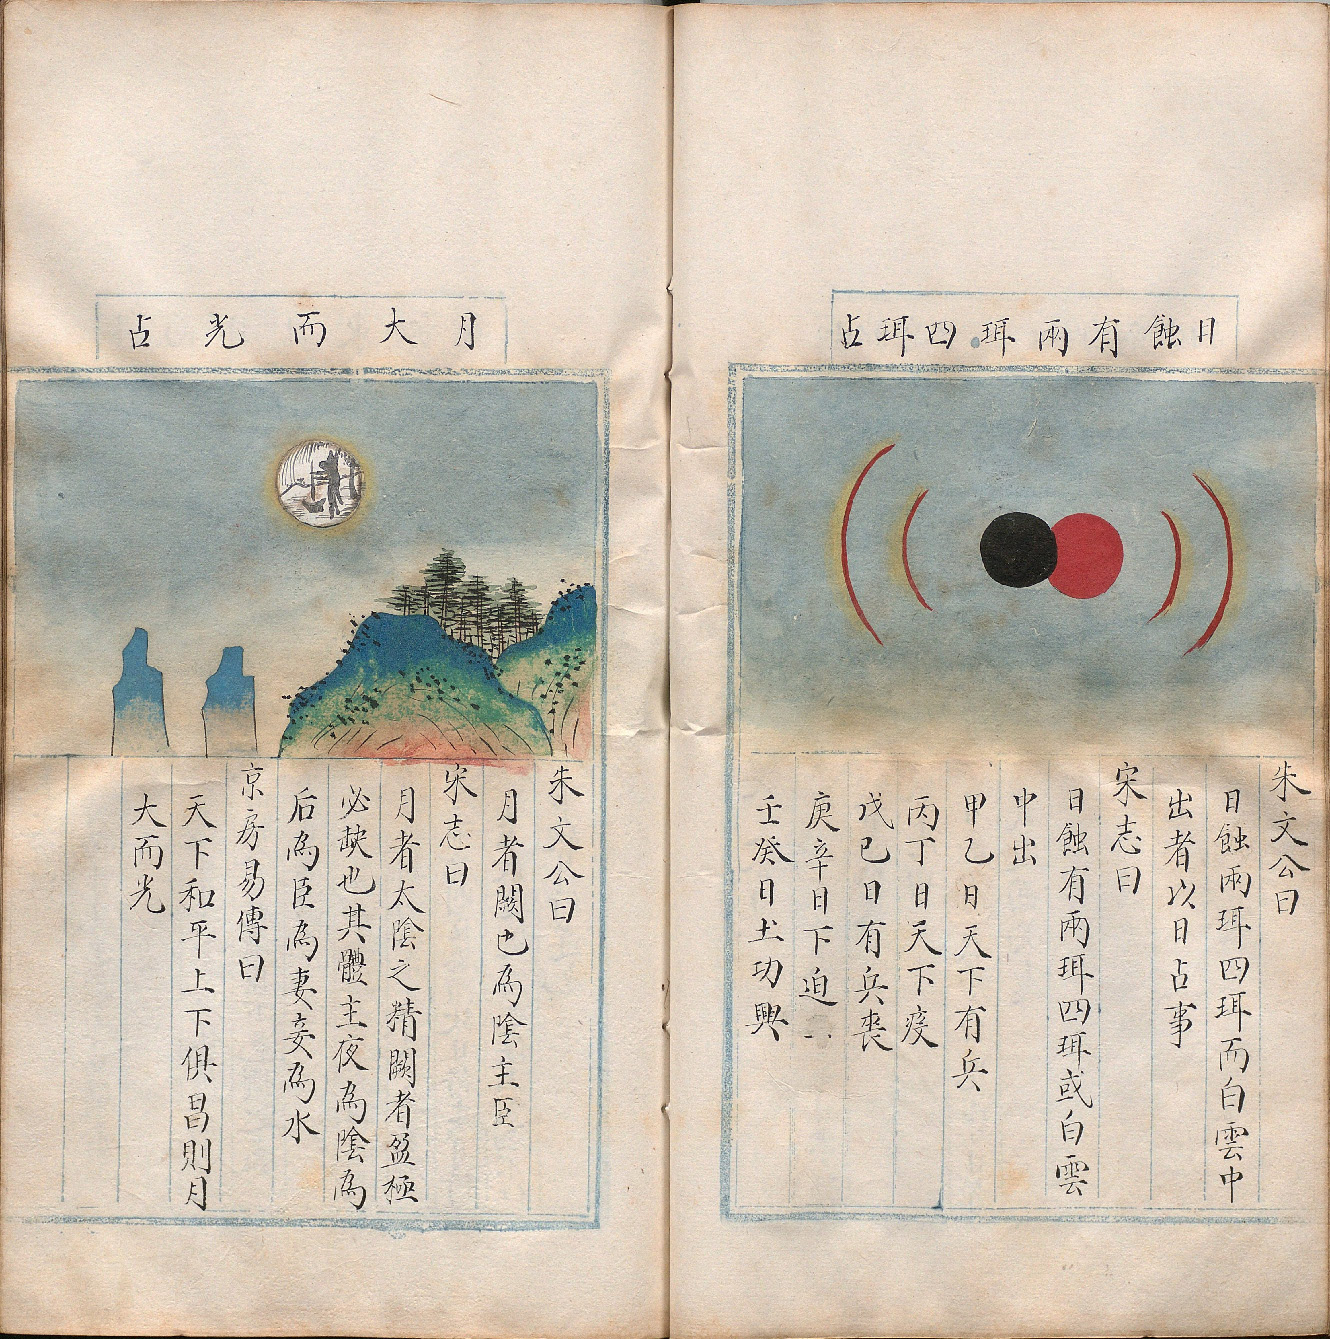 日蝕有兩珥四珥占
朱文公曰
日蝕兩珥四珥而白雲中
出者以日占事
宋志曰
日蝕有兩珥四珥或白雲
中出
甲乙日天下有兵
丙丁日天下疫
戊己日有兵喪
庚辛日下迫
壬癸日土功興
月大而光占
朱文公曰
月者闕也為陰主臣
宋志曰
月者太陰之精闕者盈極
必缺也其體主夜為陰為
后為臣為妻妾為水
京房易傳曰
天下和平上下俱昌則月
大而光